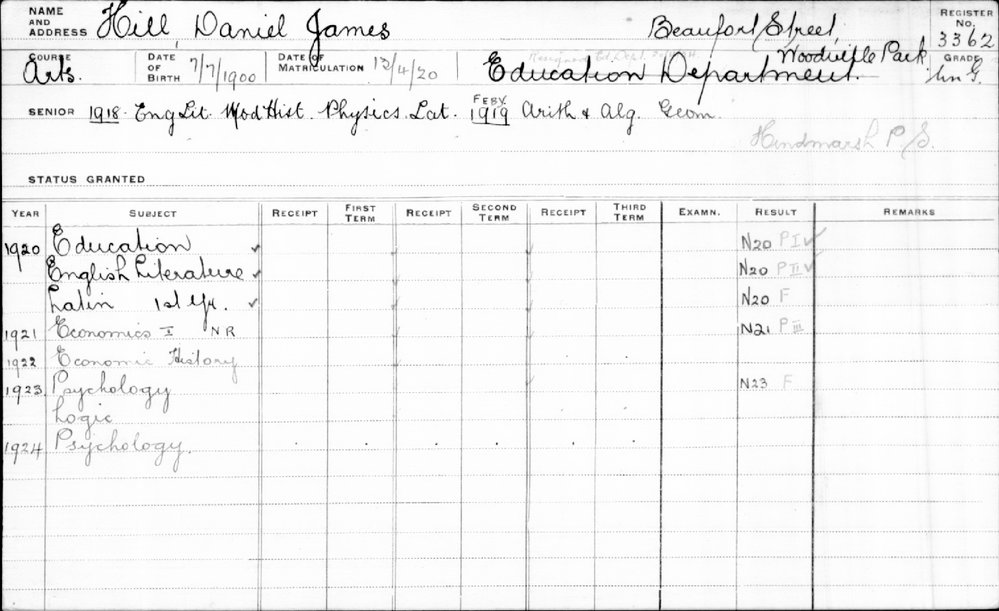 NAME AND ADDRESS Hill, Daniel James Beaufort Street, Woodville Park. REGISTER No. 3362
COURSE Arts. DATE OF BIRTH 7/7/1900 DATE OF MATRICULATION 13/4/20 Resigned Ed. Dept. Education Department. GRADE G.
SENIOR 1918. Eng Lit Mod Hist. Physics. Lat. FEBY. 1919 Arith & Alg. Geom.
Hindmarsh P/S.
STATUS GRANTED
YEAR SUBJECT RECEIPT FIRST TERM RECEIPT SECOND TERM RECEIPT THIRD TERM EXAMN. RESULT REMARKS
1920 Education ✓ ✓ ✓ N20 P I ✓
English Literature ✓ ✓ ✓ N20 P II ✓
Latin 1st Yr. ✓ ✓ ✓ N20 F
1921 Economics I NR ✓ ✓ N21 P III
1922 Economic History
1923 Psychology ✓ ✓ N23 F
Logic
1924 Psychology.